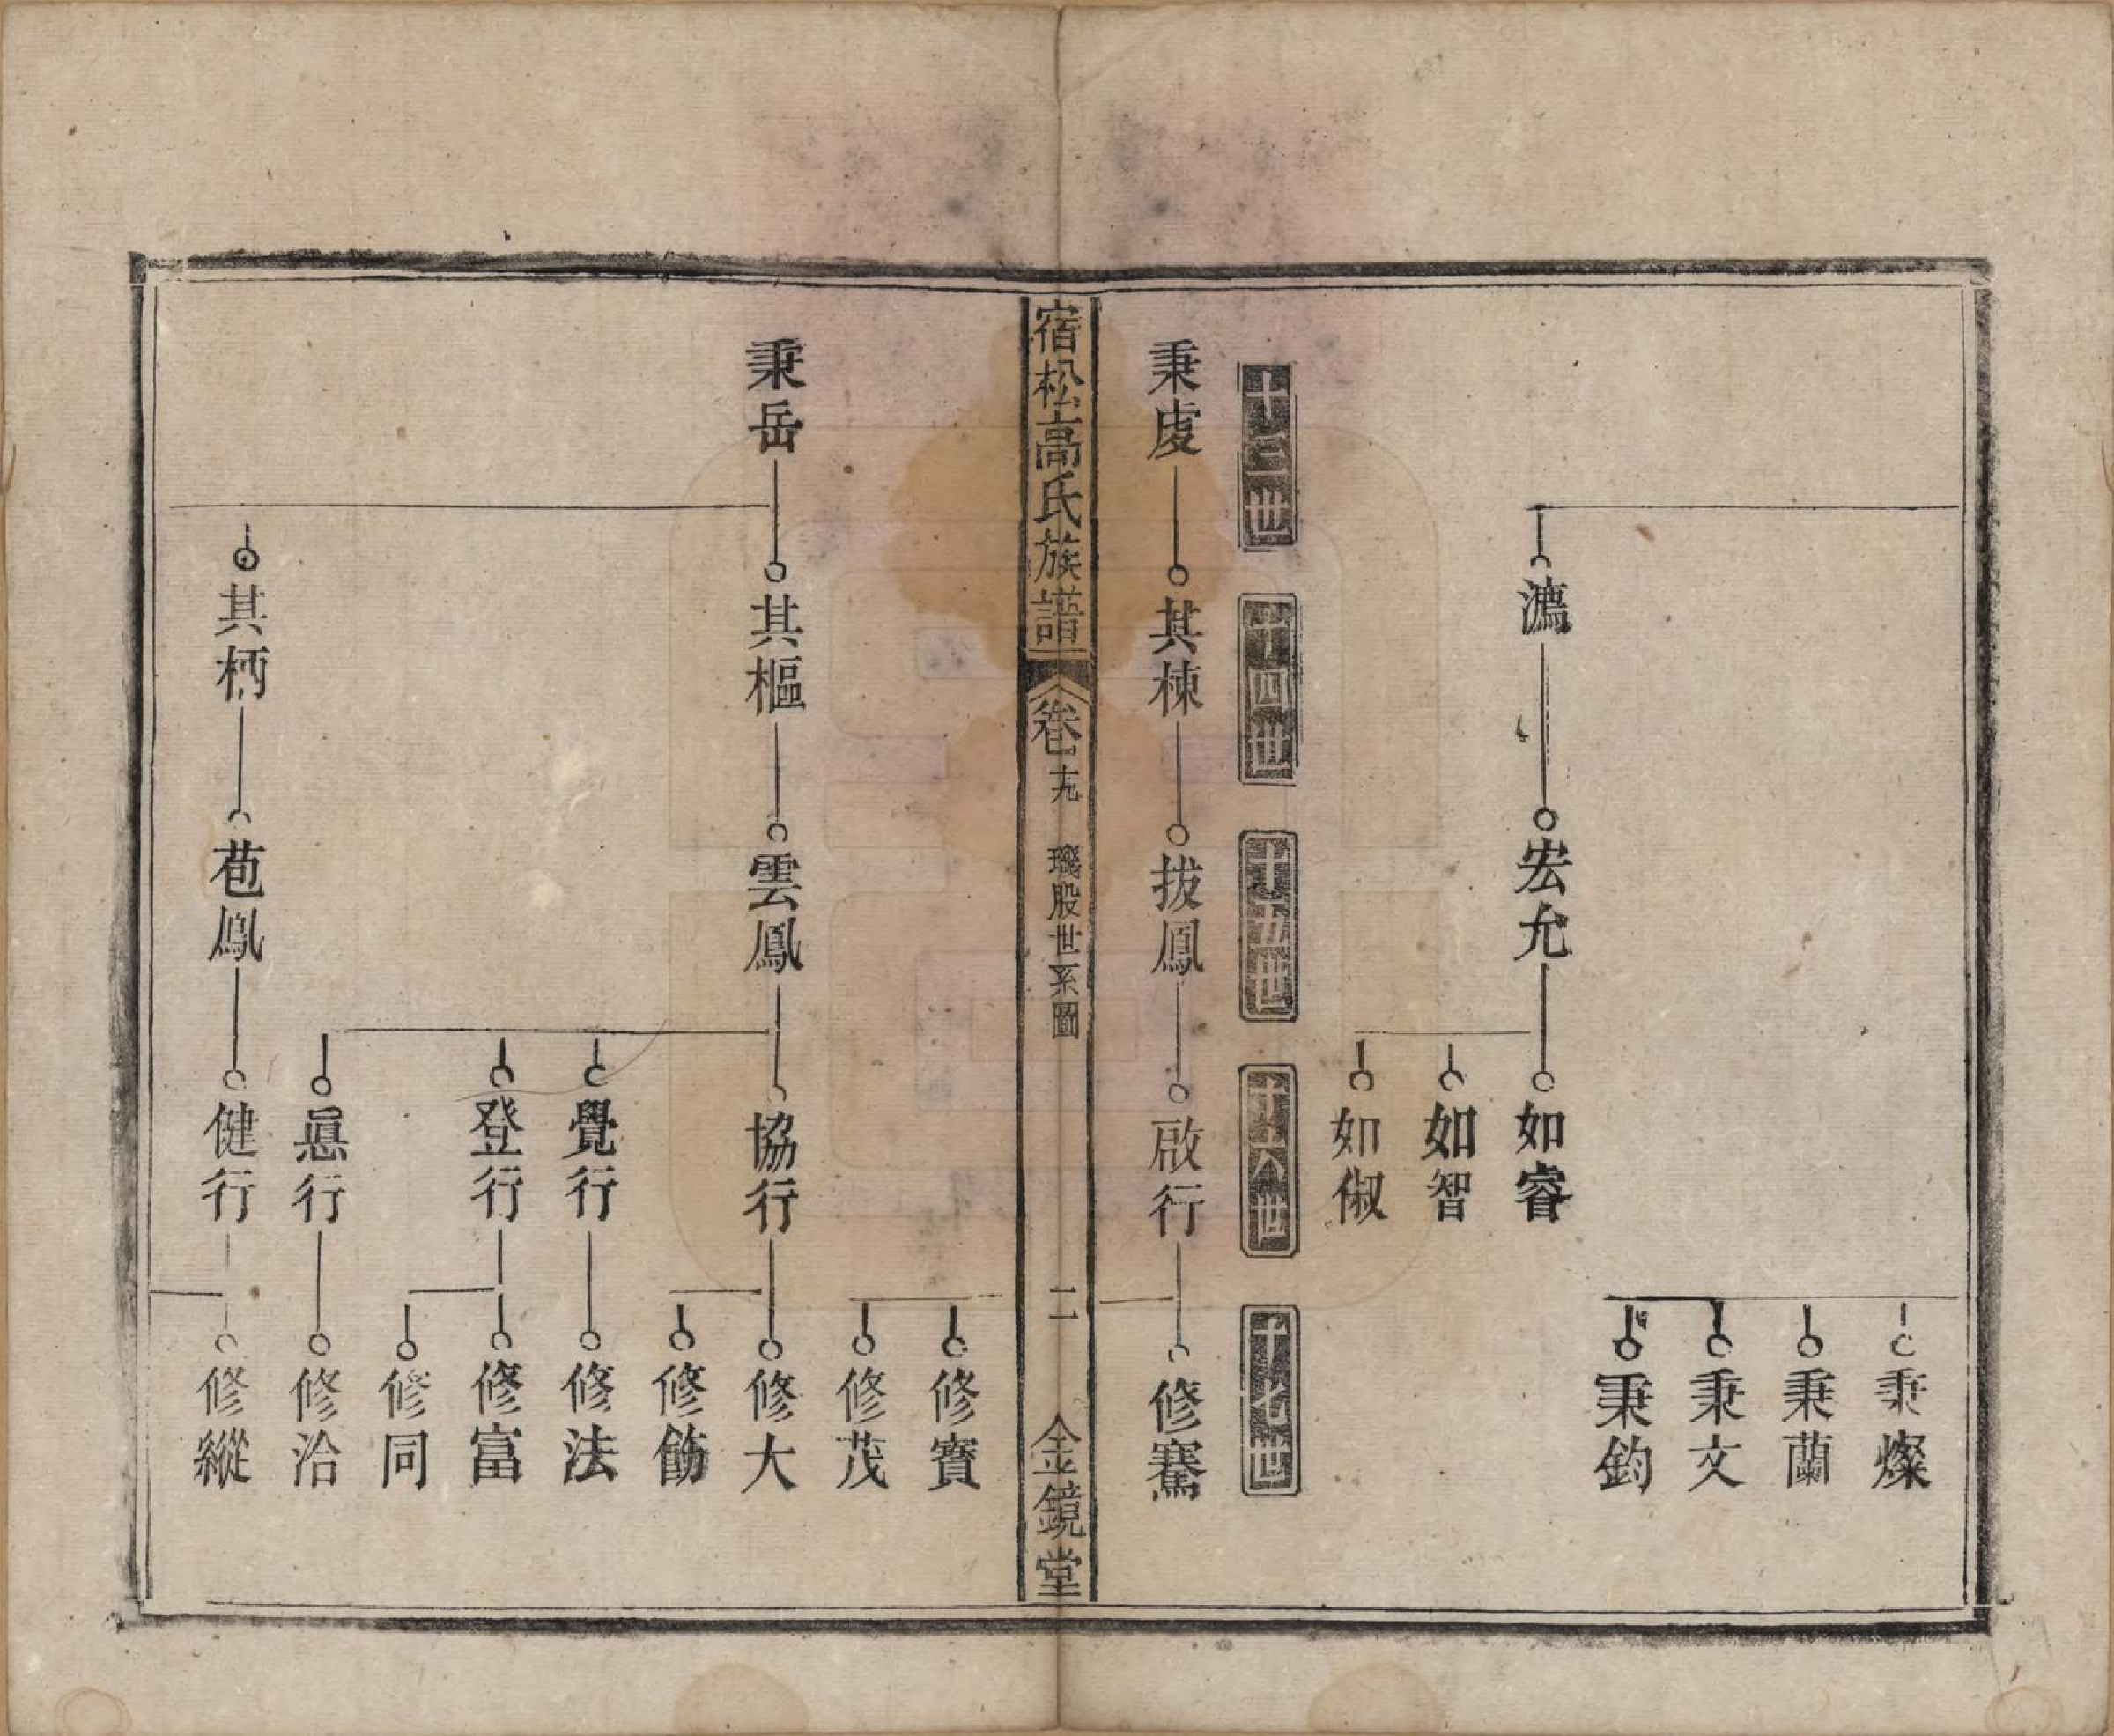 秉燦
秉蘭
秉文
秉鈞
宏允
如睿
如智
如俶
十三世
十四世
十五世
十六世
十七世
秉虔
其棟
拔鳳
啟行
修騫
宿松高氏族譜
卷十九
璣股世系圖
二
金鏡堂
修寶
修茂
秉岳
其樞
雲鳳
協行
修大
修飭
覺行
修法
登行
修富
修同
行
修治
其柄
苞鳳
健行
修縱